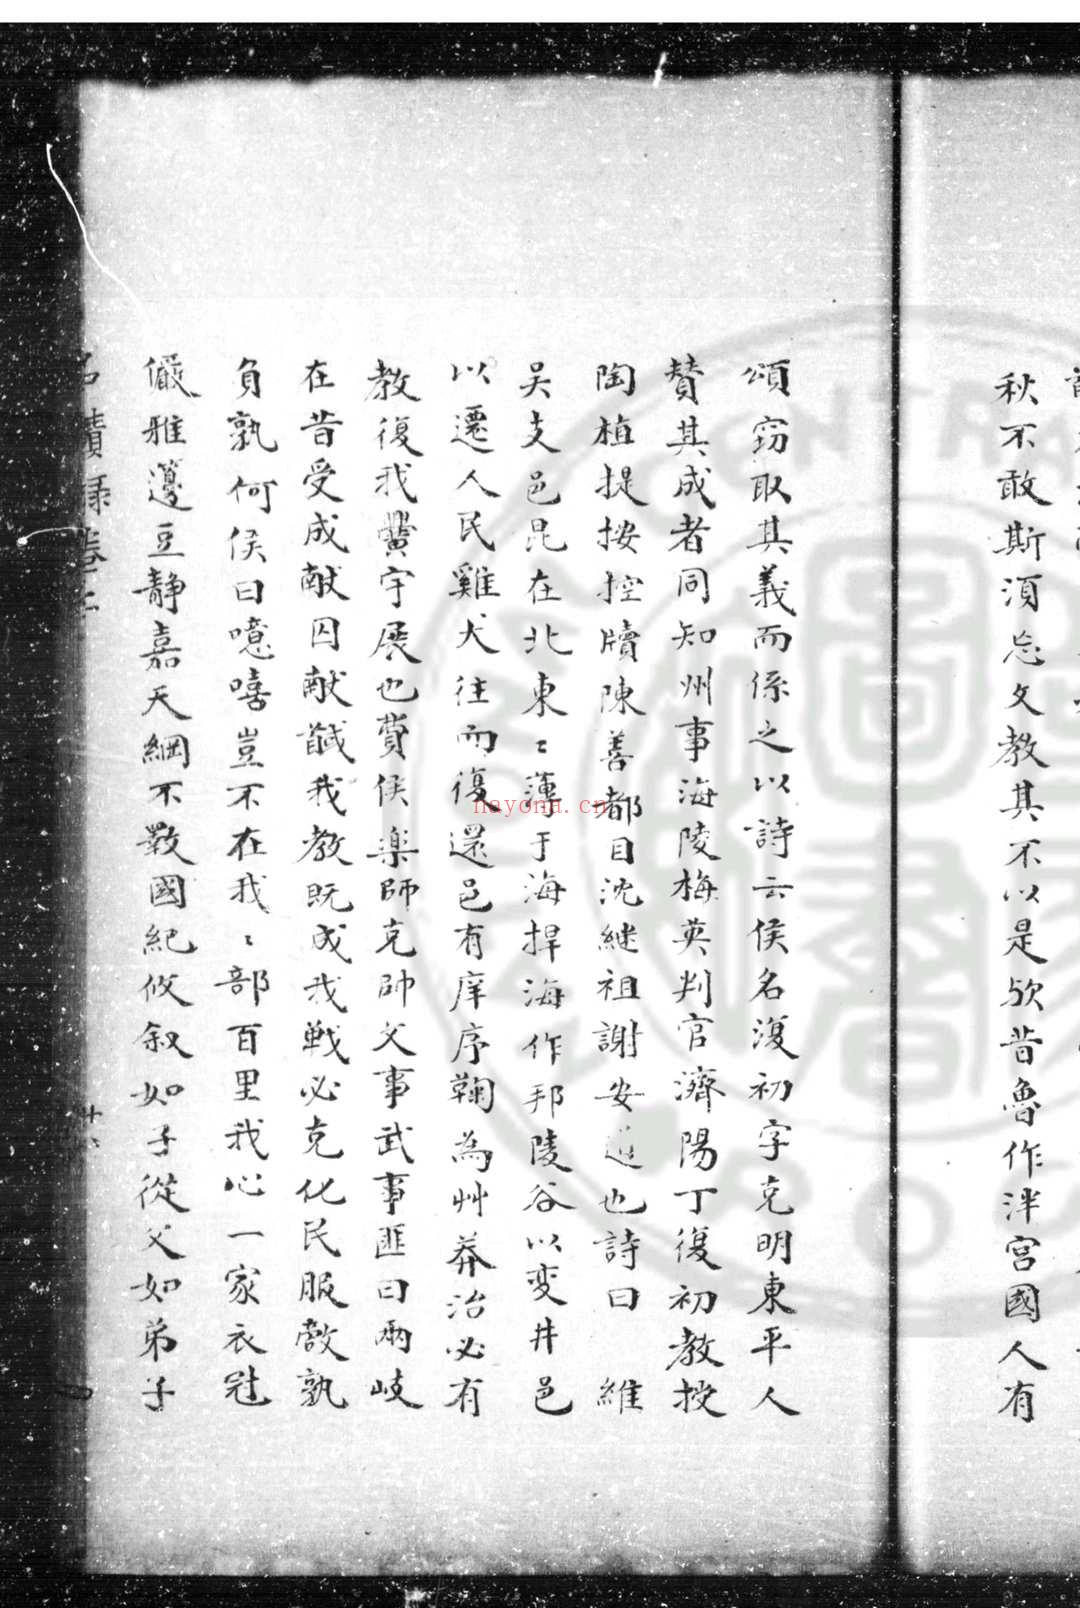 秋不敢斯須忘文教其不以是欤昔魯作泮宮國人有
頌窃取其義而係之以詩云侯名復初字克明東平人
賛其成者同知州事海陵梅英判官濟陽丁復初教授
陶植提按控牘陳善都目沈継祖謝安道也詩曰 維
吴支邑昆在北東〻薄于海捍海作邦陵谷以变井邑
以遷人民雞犬往而復還邑有庠序鞠為艸莽治必有
教復我黌宇展也費侯楽師克帥文事武事匪曰兩岐
在昔受成献囚献馘我教既成我戦必克化民服敵孰
負孰何侯曰噫嘻豈不在我〻部百里我心一家衣冠
儼雅籩豆静嘉天綱不斁國紀攸叙如子從父如弟子
名蹟録卷二
廿六
nayona.cn